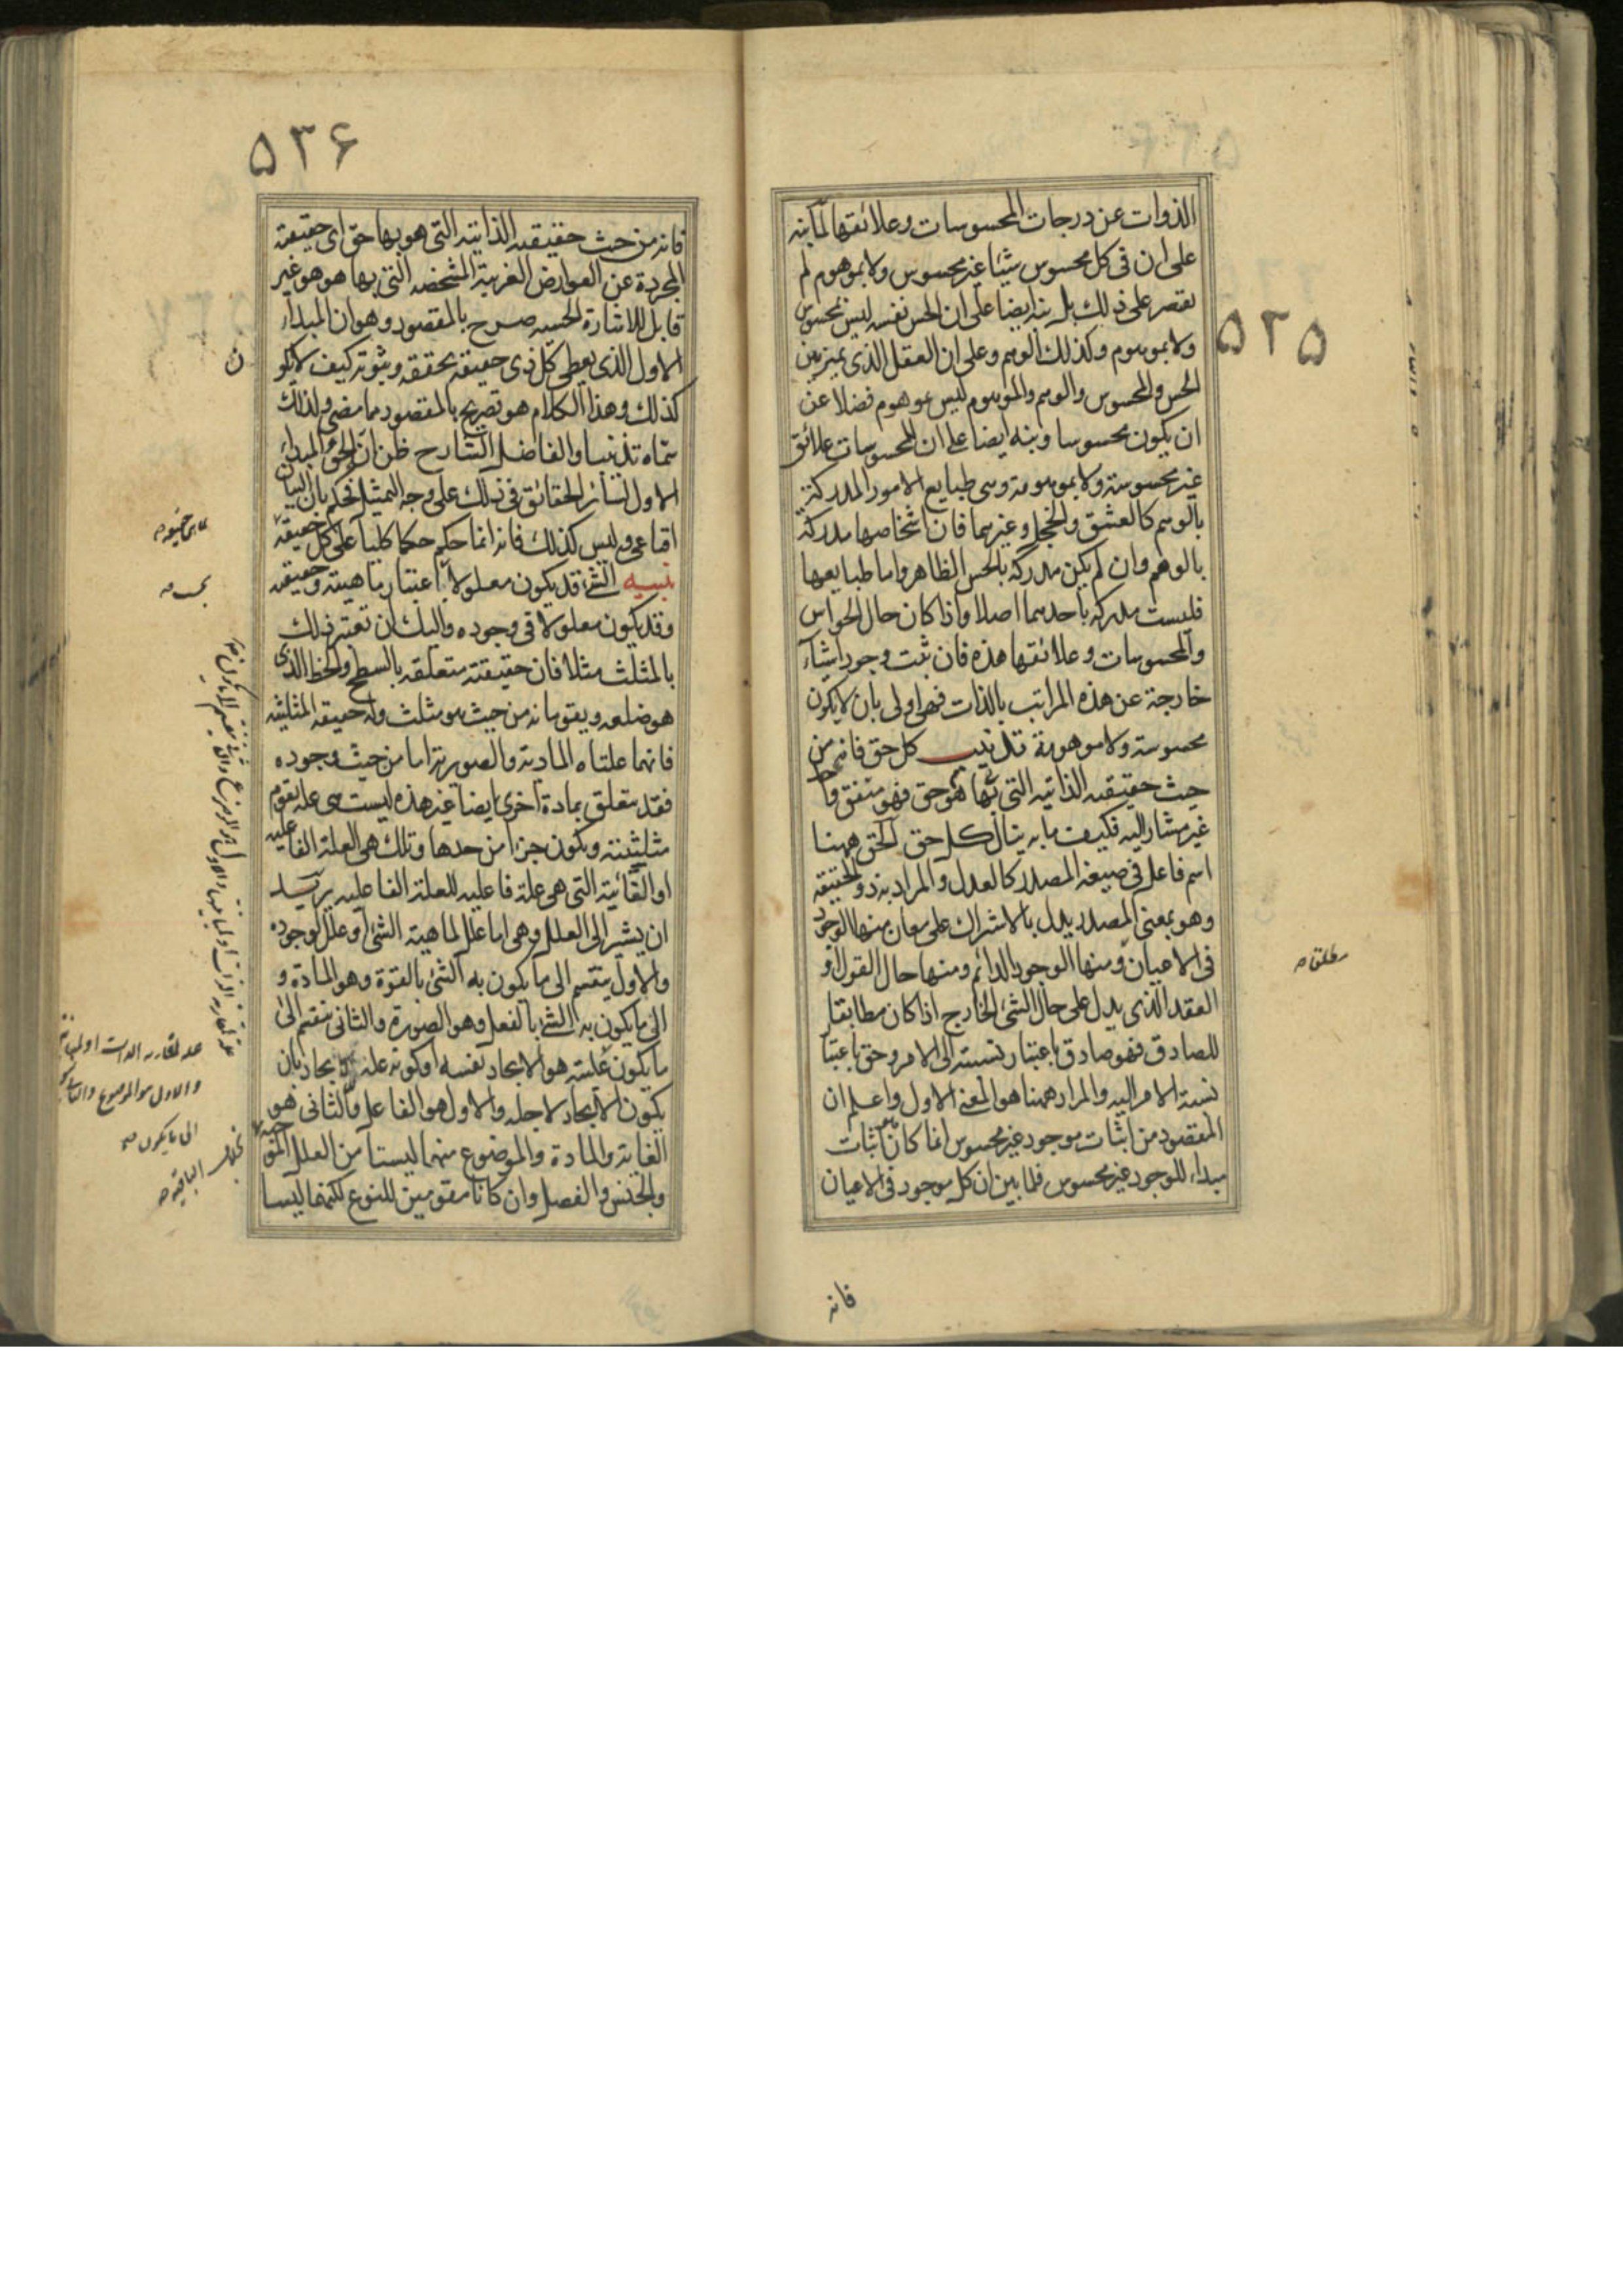 ۵۳۵
الذوات عن درجات المحسوسات وعلائقها لما نبه
على ان فى كل محسوس شيئا غير محسوس ولا بموهوم لم
يقصر على ذلك بل نبه ايضا على ان الحس نفسه ليس بمحسوس
ولا بموهوم وكذلك الوهم وعلى ان العقل الذى يميز بين
الحس والمحسوس والوهم والموهوم ليس بموهوم فضلا عن
ان يكون محسوسا ونبه ايضا على ان للمحسوسات علائق
غير محسوسة ولا بموهومة وهى طبايع الامور المدركة
بالوهم كالعشق والخجل وغيرهما فان اشخاصها مدركة
بالوهم وان لم يكن مدركة بالحس الظاهر واما طبايعها
فليست مدركة باحدهما اصلا واذا كان حال الحواس
والمحسوسات وعلائقها هذه فان ثبت وجود اشياء
خارجة عن هذه المراتب بالذات فهى اولى بان لا يكون
محسوسة ولا موهومة تذنيب كل حق فانه من
حيث حقيقته الذاتية التى بها هو حق فهو متفق واحد
غير مشار اليه فكيف ما به ينال كل حق الحق ههنا
اسم فاعل فى صيغة المصدر كالعدل والمراد به ذو الحقيقة
وهو بمعنى المصدر يدل بالاشتراك على معان منها الوجود
فى الاعيان ومنها الوجود الدائم ومنها حال القول او
العقد الذى يدل على حال الشئ الخارج اذا كان مطابقا
للصادق فهو صادق باعتبار نسبته الى الامر وحق باعتبا
نسبة الامر اليه والمراد ههنا هو المعنى الاول واعلم ان
المقصود من اثبات موجود غير محسوس انما كان اثبات
مبداء للوجود غير محسوس فلما بين ان كل موجود فى الاعيان
مطلقا
فانه
۵۳۶
فانه من حيث حقيقته الذاتية التى هو بها حق اى حقيقته
المجردة عن العوارض الغريبة المشخصة التى بها هو هو غير
قابل للاشارة الحسية صرح بالمقصود وهو ان المبداء
الاول الذى يعطى كل ذى حقيقة تحققه وثبوته كيف لا يكو
ن
كذلك وهذا الكلام هو تصريح بالمقصود مما مضى ولذلك
سماه تذنيبا والفاضل الشارح ظن ان الحق المبداء
الاول لسائر الحقائق فى ذلك على وجه التمثيل فحكم بان البيان
اقناعى وليس كذلك فانه انما حكم حكما كليا على كل حقيقة
تنبيه الشئ قد يكون معلولا باعتبار ماهيته وحقيقته
وقد يكون معلولا فى وجوده واليك ان تعتبر ذلك
بالمثلث مثلا فان حقيقته متعلقة بالسطح والخط الذى
هو ضلعه ويقومانه من حيث هو مثلث وله حقيقة المثلثية
فانهما علتاه المادية والصورية اما من حيث وجوده
فقد يتعلق بمادة اخرى ايضا غير هذه ليست هى علة تقوم
مثلثيته ويكون جزا من حدها وتلك هى العلة الفاعلية
او الغائية التى هى علة فاعلية للعلة الفاعلية يريد
ان يشير الى العلل وهى اما علل لماهية الشئ او علل لوجوده
والاول ينقسم الى ما يكون به الشئ بالقوة وهو المادة و
الى ما يكون به الشئ بالفعل وهو الصورة والثانى ينقسم الى
ما يكون علته هو الايجاد نفسه او كونه علة الايجاد بان
يكون الايجاد لاجله والاول هو الفاعل والثانى هو
الغاية والمادة والموضوع منهما ليستا من العلل
والجنس والفصل وان كانا مقومين للنوع لكنهما ليسا
والاول هو الموضوع
الى ما يكون
الباقية